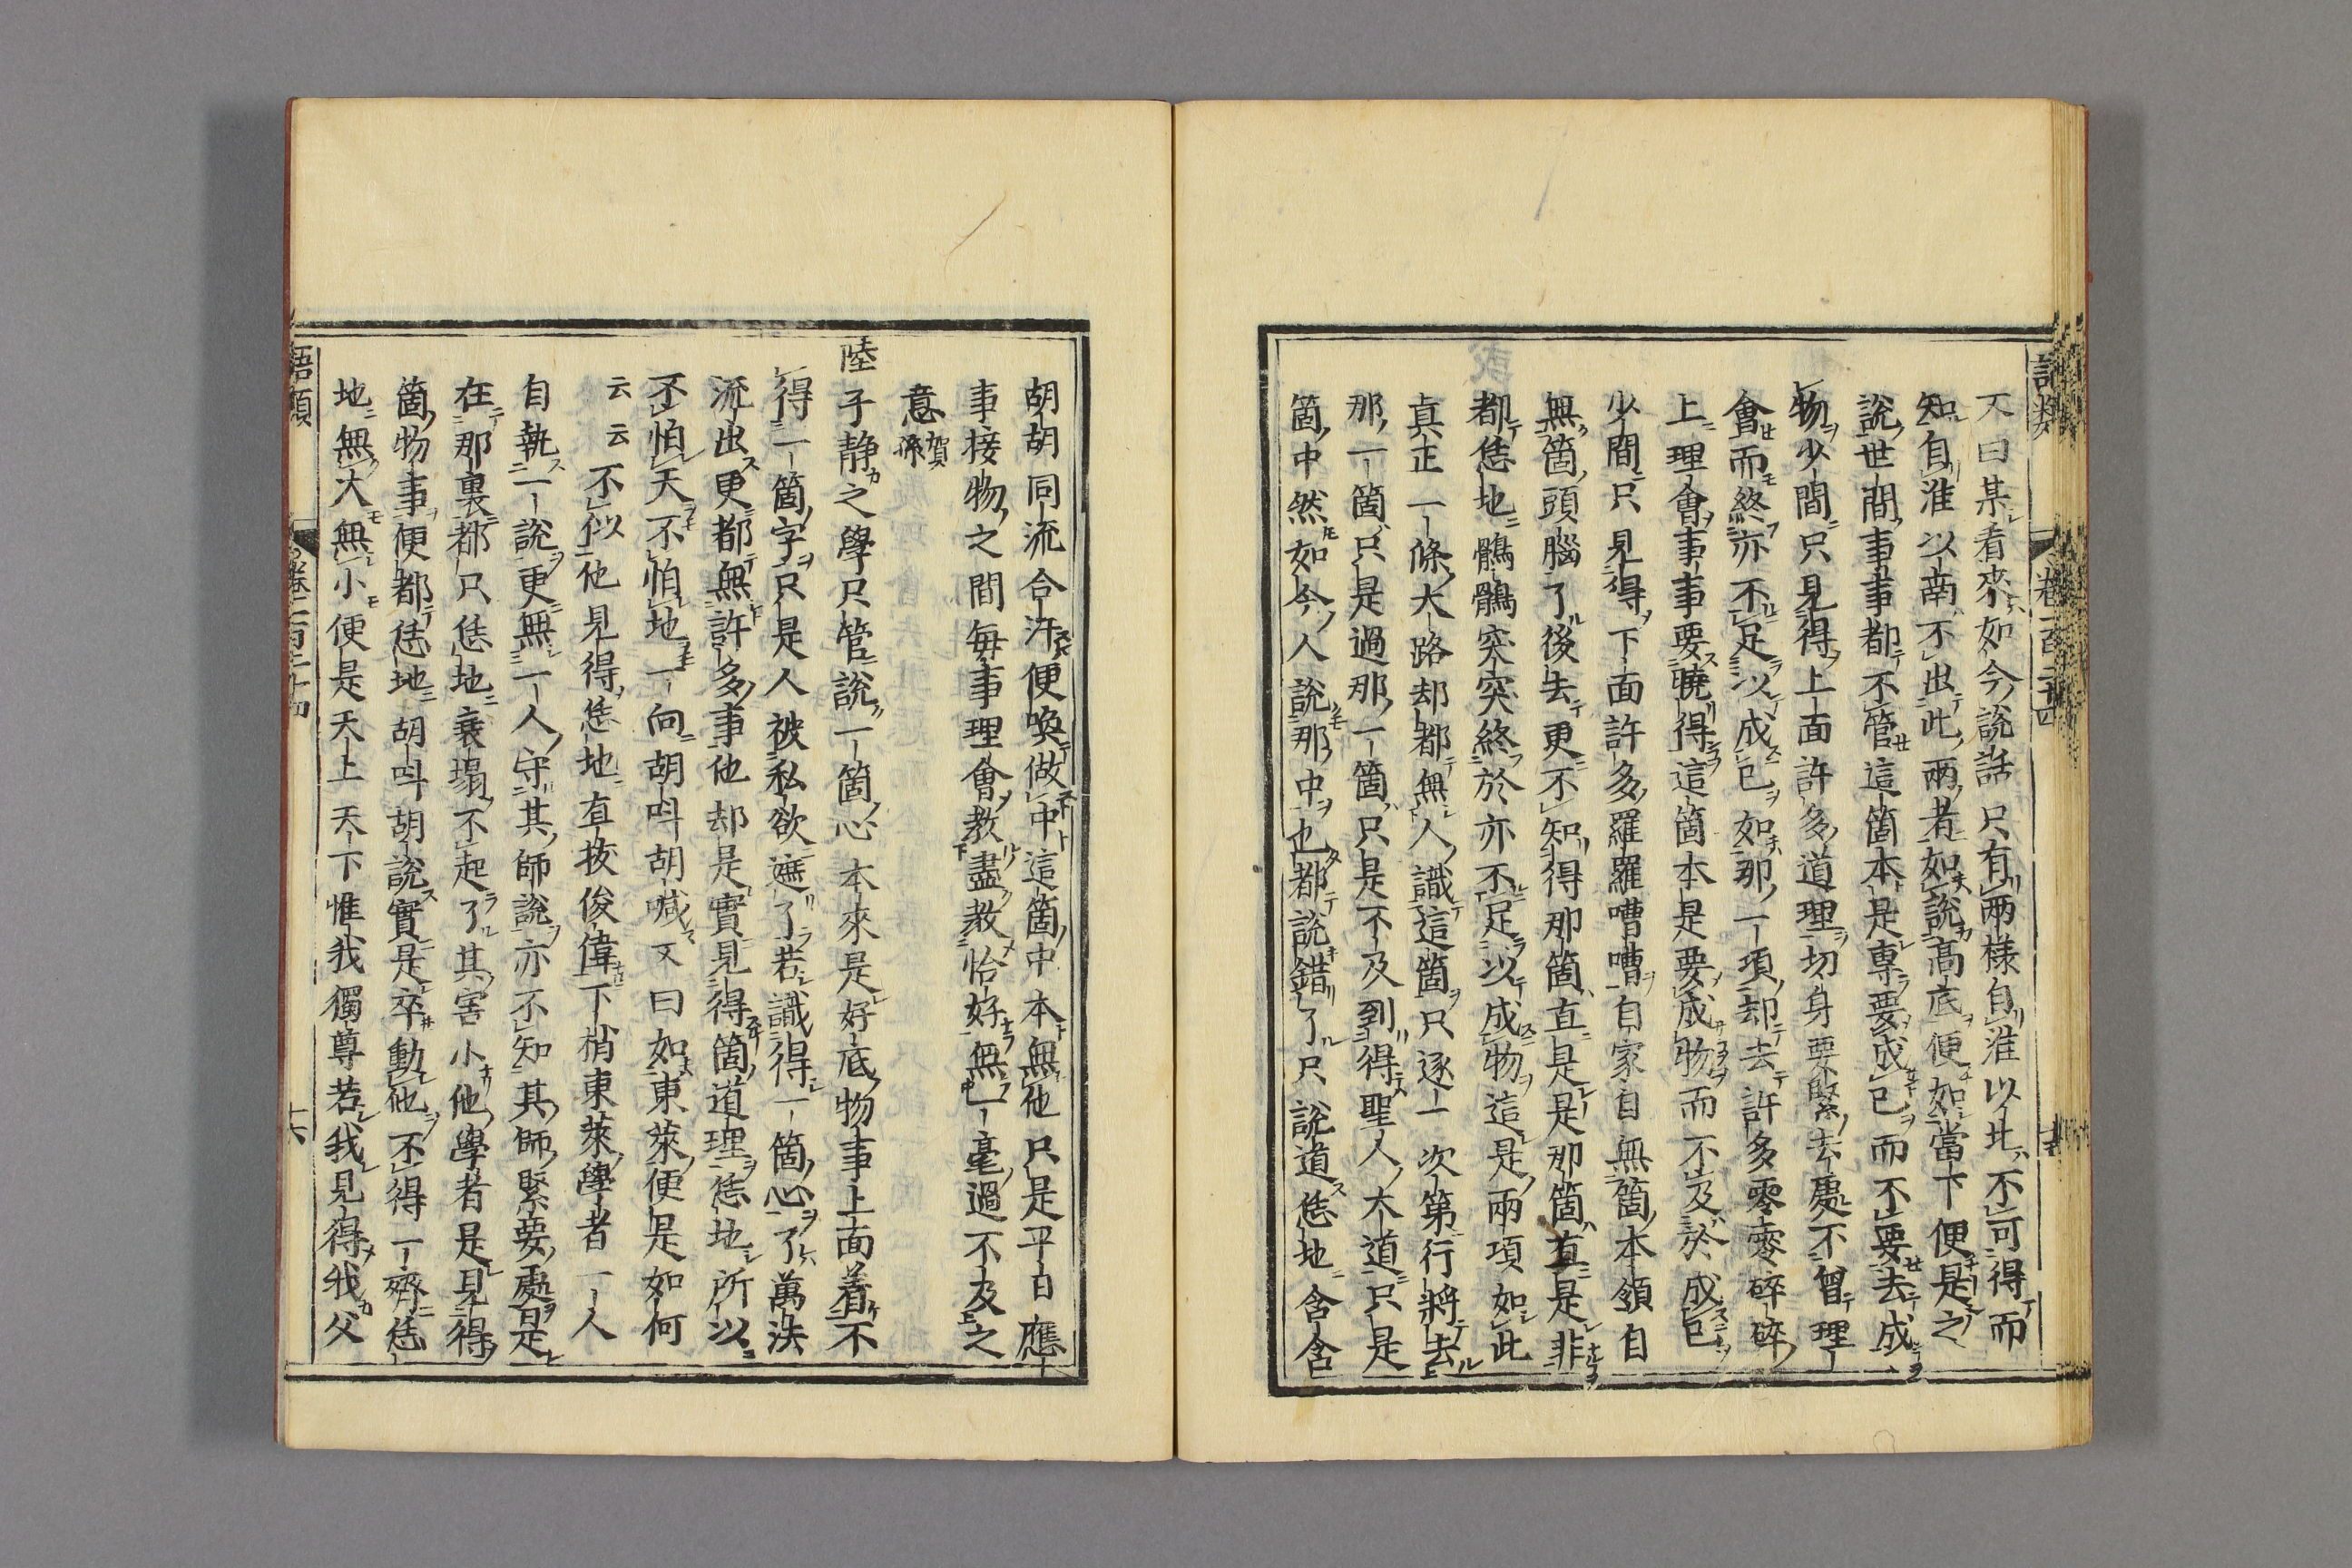 語類 卷一百二十四
又曰某看來如今說話只有兩樣自淮以北不可得而
知自淮以南不出此兩者如說高底便如當下便是之
說世間事事都不管這箇本是專要成己而不要去成
物少間只見得上面許多道理切身要緊去處不曾理
會而終亦不足以成己如那一項却去許多零零碎碎
上理會事事要曉得這箇本是要成物而不及於成己
少間只見得下面許多羅羅嘈嘈自家自無箇本領自
無箇頭腦了後去更不知得那箇直是是那箇直是非
都恁地鶻鶻突突終於亦不足以成物這是兩項如此
真正一條大路却都無人識這箇只逐一次第行將去
那一箇只是過那一箇只是不及到得聖人大道只是
箇中然如今人說那中也都說錯了只說道恁地含含
胡胡同流合汙便喚做中這箇中本無他只是平日應
事接物之間每事理會教盡教恰好無一毫過不及之
意 賀孫
陸子靜之學只管說一箇心本來是好底物事上面着不
得一箇字只是人被私欲遮了若識得一箇心了萬法
流出更都無許多事他却是實見得箇道理恁地所以
不怕天不怕地一向胡呌胡喊又曰如東萊便是如何
云云不似他見得恁地直拔俊偉下梢東萊學者一人
自執一說更無一人守其師說亦不知其師緊要處是
在那裏都只恁地衰塌不起了其害小他學者是見得
箇物事便都恁地胡呌胡說實是卒動他不得一齊恁
地無大無小便是天上天下惟我獨尊若我見得我父
語類 卷一百二十四 十六